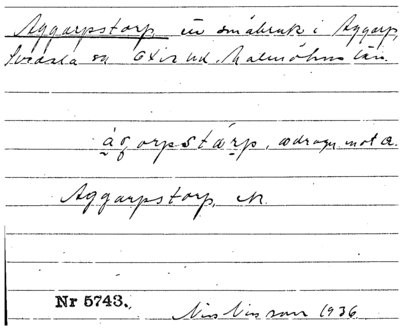 Aggarpstorp, ett småbruk i Aggarp,
Svedala sn Oxie hd. Malmöhus län.
ágorpstárp, odragn. mot a.
Aggarpstorp, N.
Nr 5743.
Nils Nilsson 1936